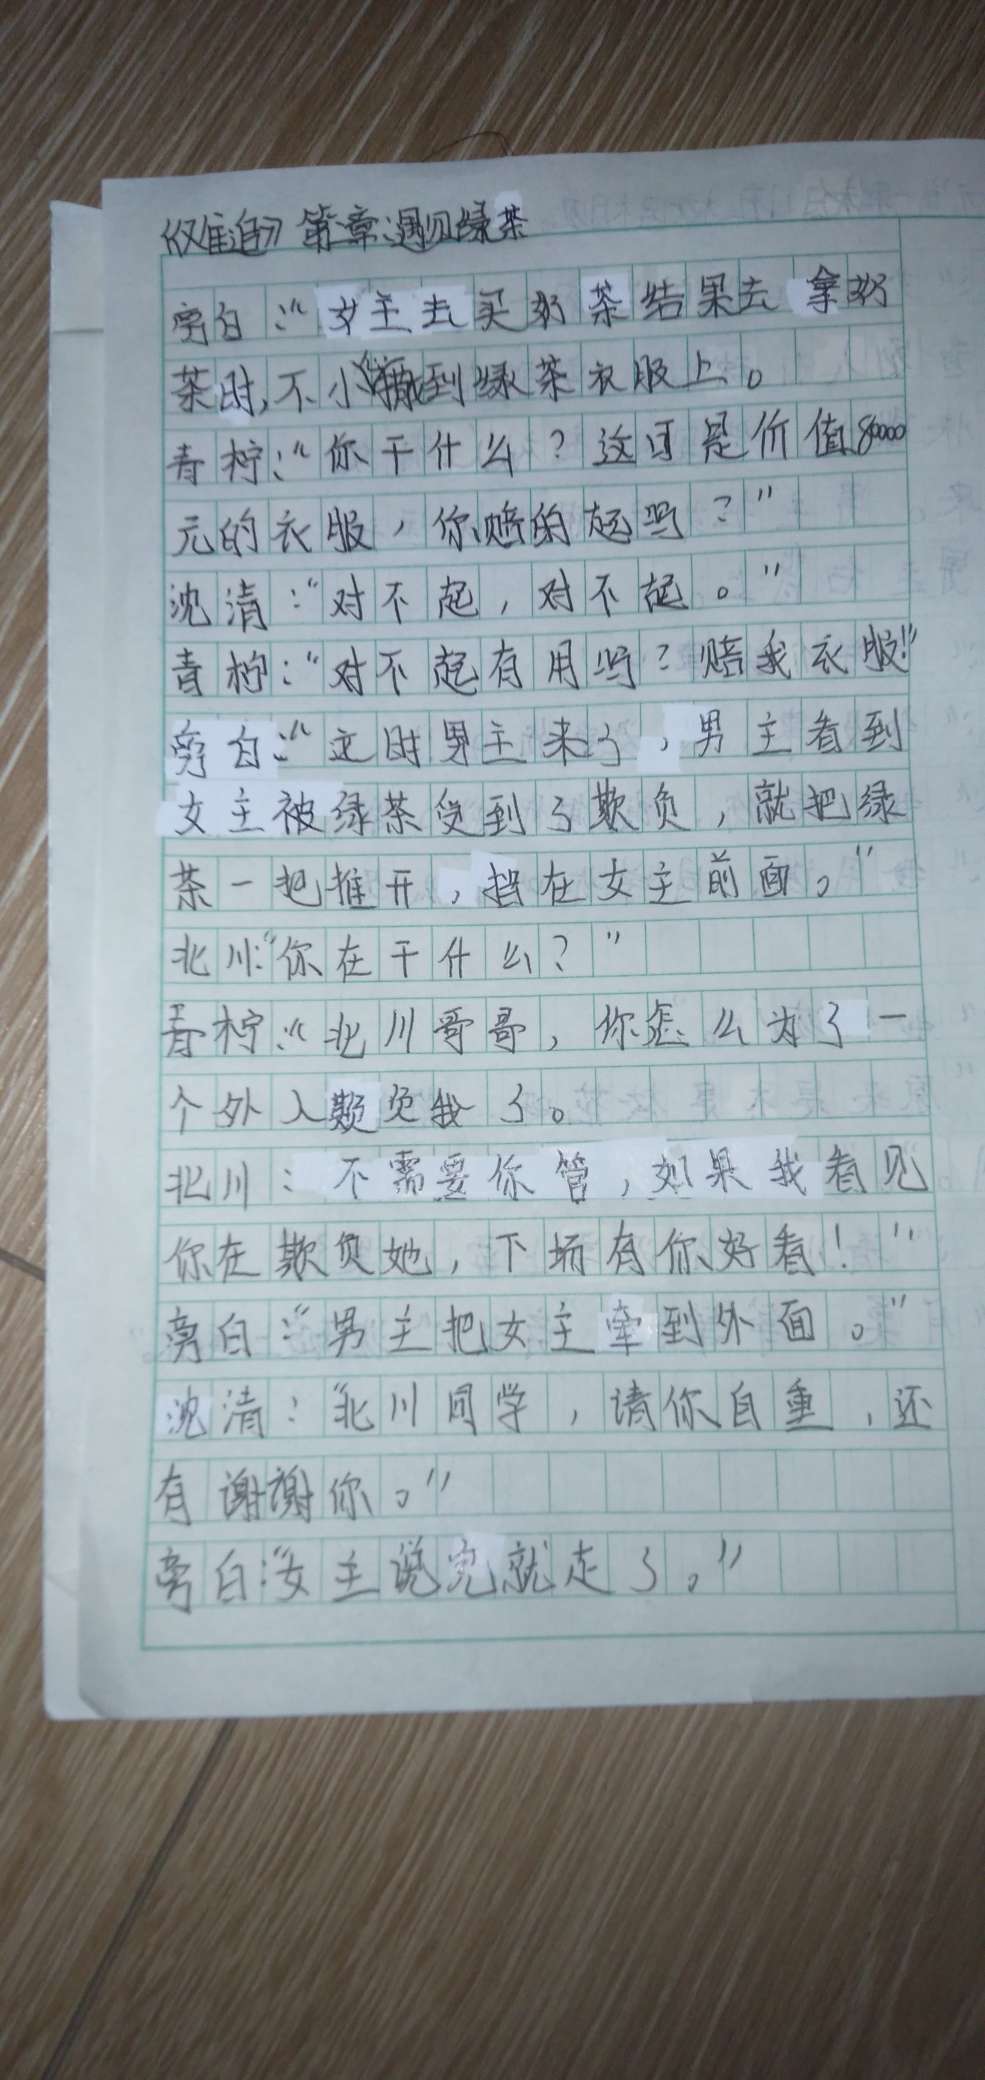 《又难追》第一章:遇见绿茶
旁白:“女主去买奶茶结果去拿奶
茶时,不小撒到绿茶衣服上。
青柠:“你干什么?这可是价值80000
元的衣服,你赔的起吗?”
沈清:“对不起,对不起。”
青柠:“对不起有用吗?赔我衣服!”
旁白:“这时男主来了,男主看到
女主被绿茶受到了欺负,就把绿
茶一把推开,挡在女主前面。”
北川:“你在干什么?”
青柠:“北川哥哥,你怎么为了一
个外人欺负我了。
北川:不需要你管,如果我看见
你在欺负她,下场有你好看!”
旁白:“男主把女主牵到外面。”
沈清:“北川同学,请你自重,还
有谢谢你。”
旁白:“女主说完就走了。”